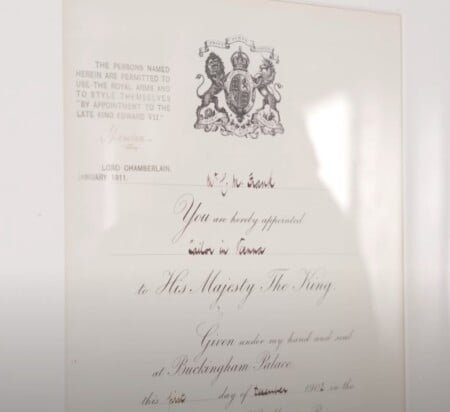 THE PERSONS NAMED
HEREIN ARE PERMITTED TO
USE THE ROYAL ARMS AND
TO STYLE THEMSELVES
"BY APPOINTMENT TO THE
LATE KING EDWARD VII."
LORD CHAMBERLAIN.
JANUARY 1911.
Frank
You are hereby appointed
Tailor in Vienna
to His Majesty The King.
Given under my hand and seal
at Buckingham Palace
this first day of December 190 in the